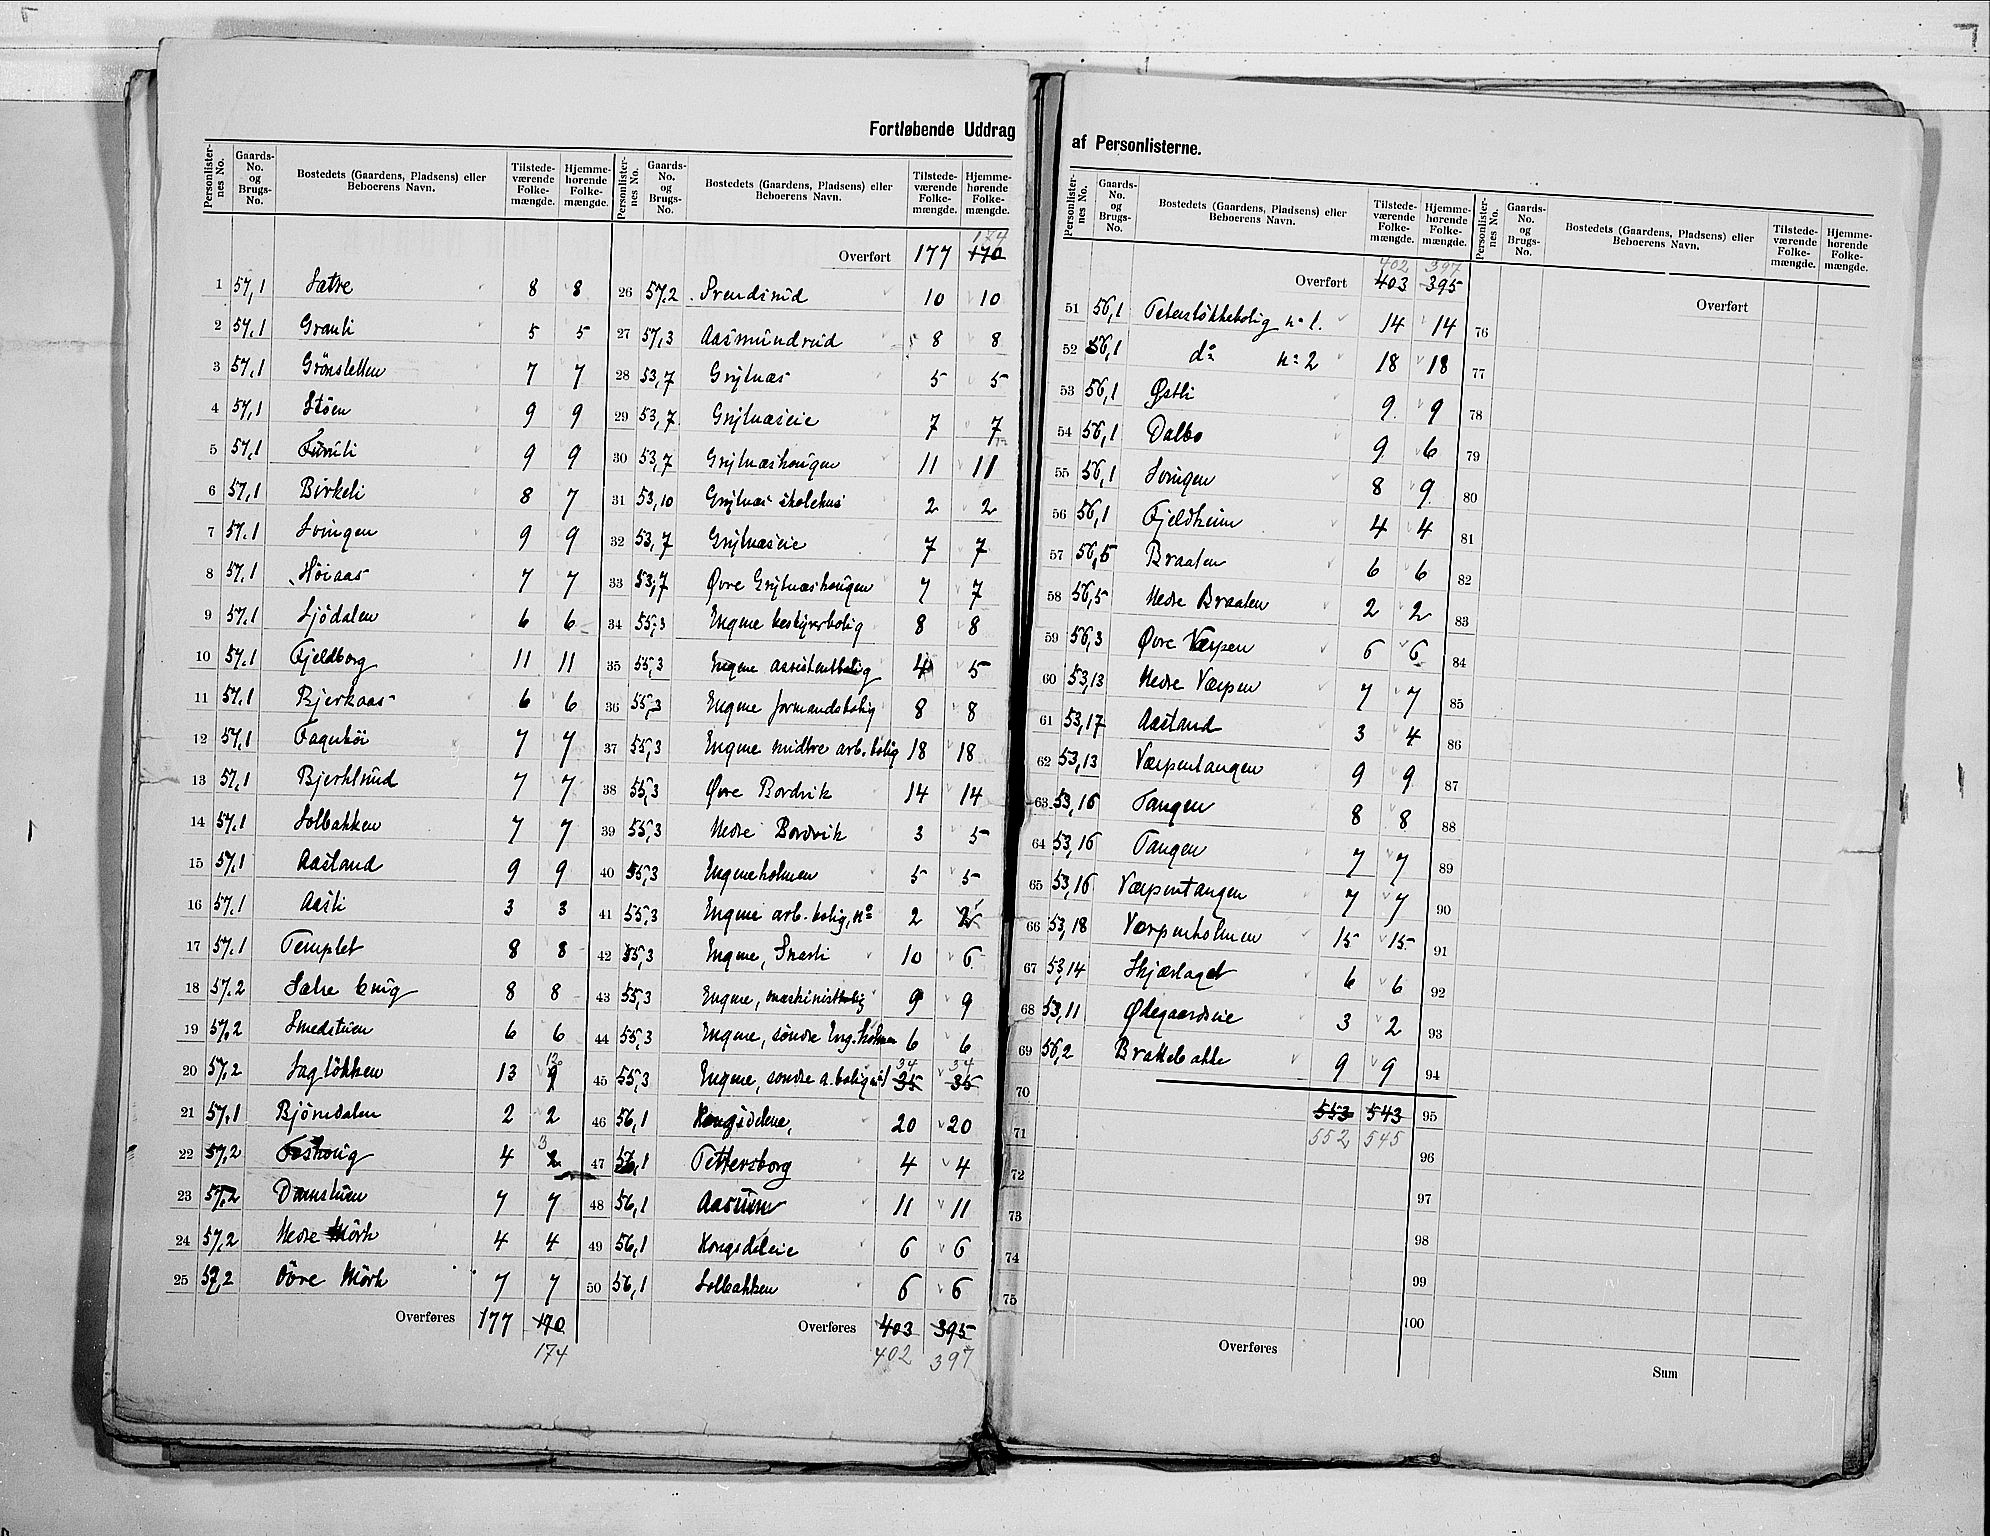 Fortløbende Uddrag
Personlisternes No.
Gaards-No. og Brugs-No.
Bostedets (Gaardens, Pladsens) eller Beboerens Navn.
Tilstedeværende Folkemængde.
Hjemmehørende Folkemængde.
1 57,1 Sætre 8 8
2 57,1 Granli 5 5
3 57,1 Grönsletten 7 7
4 57,1 Stöen 9 9
5 57,1 Furuli 9 9
6 57,1 Birkeli 8 7
7 57,1 Svingen 9 9
8 57,1 Höiaas 7 7
9 57,1 Sjödalen 6 6
10 57,1 Fjeldborg 11 11
11 57,1 Bjerkaas 6 6
12 57,1 Fagerhöi 7 7
13 57,1 Bjerklund 7 7
14 57,1 Solbakken 7 7
15 57,1 Aasland 9 9
16 57,1 Aasli 3 3
17 57,1 Templet 8 8
18 57,2 Sætre brug 8 8
19 57,2 Smedstuen 6 6
20 57,2 Sagløkken 13 9
21 57,1 Björndalen 2 2
22 57,2 4 2 3
23 57,2 Damstuen 7 7
24 57,2 Nedre Mörk 4 4
25 57,2 Övre Mörk 7 7
Overføres 177 170
174
Personlisternes No.
Gaards-No. og Brugs-No.
Bostedets (Gaardens, Pladsens) eller Beboerens Navn.
Tilstedeværende Folkemængde.
Hjemmehørende Folkemængde.
174
Overført 177 170
26 57,2 Svendsrud 10 10
27 57,3 Aasmundrud 8 8
28 53,7 Grytnæs 5 5
29 53,7 Grytnæseie 7 7
30 53,7 Grytnæshaugen 11 11
31 53,10 Grytnæs skolehus 2 2
32 53,7 Grytnæseie 7 7
33 53,7 Øvre Grytnæshaugen 7 7
34 55,3 Engene bestyrerbolig 8 8
35 55,3 Engene assistentbolig 4 5
36 55,3 Engene formandsbolig 8 8
37 55,3 Engene midtre arb. bolig 18 18
38 55,3 Øvre Bordvik 14 14
39 55,3 Nedre Bordvik 3 5
40 55,3 Engeneholmen 5 5
41 55,3 Engene arb. bolig, no 2 2
42 55,3 Engene, Snarli 10 6
43 55,3 Engene, maskinistbolig 9 9
44 55,3 Engene, søndre Eng.holmen 6 6
34 34
45 55,3 Engene, søndre a.bolig 35 35
46 56,1 Kongsdelene, 20 20
47 56,1 Pettersborg 4 4
48 56,1 11 11
49 56,1 Kongsdeleie 6 6
50 56,1 Solbakken 6 6
Overføres 403 395
402 397
af Personlisterne.
Personlisternes No.
Gaards-No. og Brugs-No.
Bostedets (Gaardens, Pladsens) eller Beboerens Navn.
Tilstedeværende Folkemængde.
Hjemmehørende Folkemængde.
402 397
Overført 403 395
51 56,1 Petersløkkebolig no 1. 14 14
52 56,1 do no 2 18 18
53 56,1 Østli 9 9
54 56,1 Dalbo 9 6
55 56,1 Svingen 8 9
56 56,1 Fjeldheim 4 4
57 56,5 Braaten 6 6
58 56,5 Nedre Braaten 2 2
59 56,3 Øvre Værpen 6 6
60 53,13 Nedre Værpen 7 7
61 53,17 Aasland 3 4
62 53,13 Værpentangen 9 9
63 53,16 Tangen 8 8
64 53,16 Tangen 7 7
65 53,16 Værpentangen 7 7
66 53,18 Værpenholmen 15 15
67 53,14 Skjærlaget 6 6
68 53,11 Ødegaardseie 3 2
69 56,2 Brattebakke 9 9
70
553 543
71
552 545
72
73
74
75
Overføres
Personlisternes No.
Gaards-No. og Brugs-No.
Bostedets (Gaardens, Pladsens) eller Beboerens Navn.
Tilstedeværende Folkemængde.
Hjemmehørende Folkemængde.
Overført
76
77
78
79
80
81
82
83
84
85
86
87
88
89
90
91
92
93
94
95
96
97
98
99
100
Sum